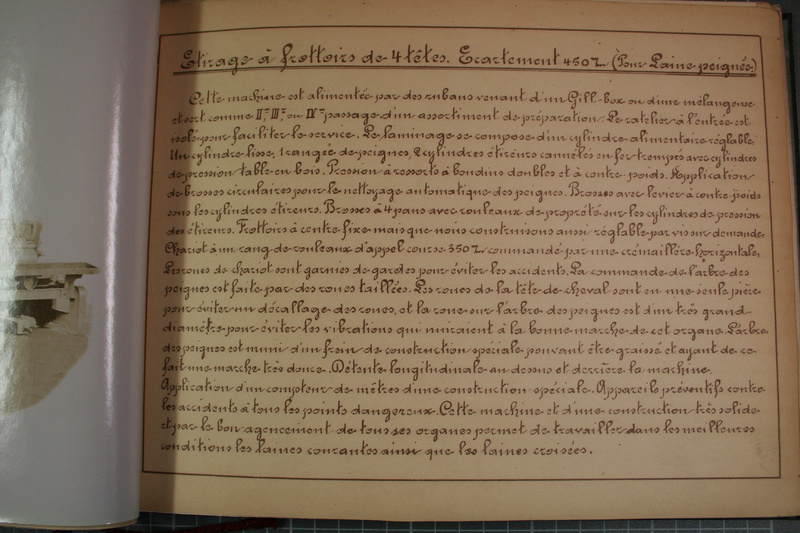 Etirage à frottoirs de 4 têtes. Ecartement 450 %. (Pour Laine peignée)
Cette machine est alimentée par des rubans venant d'un Gill-box ou d'une mélangeuse
et sert comme II.e III.e ou IV.e passage d'un assortiment de préparation. Le ratelier à l'entrée est
isolé pour faciliter le service. Le laminage se compose d'un cylindre alimentaire réglable,
Un cylindre lisse, 1 rangée de peignes, 2 cylindres étireurs cannelés en fer trempés avec cylindres
de pression table en bois. Pression à ressorts à boudins doubles et à contre-poids. Application
de brosses circulaires pour le nettoyage automatique des peignes. Brosses avec levier à contre poids
sous les cylindres étireurs. Brosses à 4 pans avec rouleaux de propreté sur les cylindres de pression
des étireurs. Frottoirs à centre fixe mais que nous construisons aussi réglable par vis sur demande.
Chariot à un rang de rouleaux d'appel course 350 % commandé par une crémaillère horizontale.
Les roues de chariot sont garnies de gardes pour éviter les accidents. La commande de l'arbre des
peignes est faite par des roues taillées. Les roues de la tête de cheval sont en une seule pièce
pour éviter un décallage des roues, et la roue sur l'arbre des peignes est d'un très grand
diamètre pour éviter les vibrations qui nuiraient à la bonne marche de cet organe. L'arbre
des peignes est muni d'un frein de construction spéciale pouvant être graissé et ayant de ce
fait une marche très douce. Détente longitudinale au dessus et derrière la machine.
Application d'un compteur de mètres d'une construction spéciale. Appareils préventifs contre
les accidents à tous les points dangereux. Cette machine et d'une construction très solide
et par le bon agencement de tous ses organes permet de travailler dans les meilleures
conditions les laines courantes ainsi que les laines croisées.